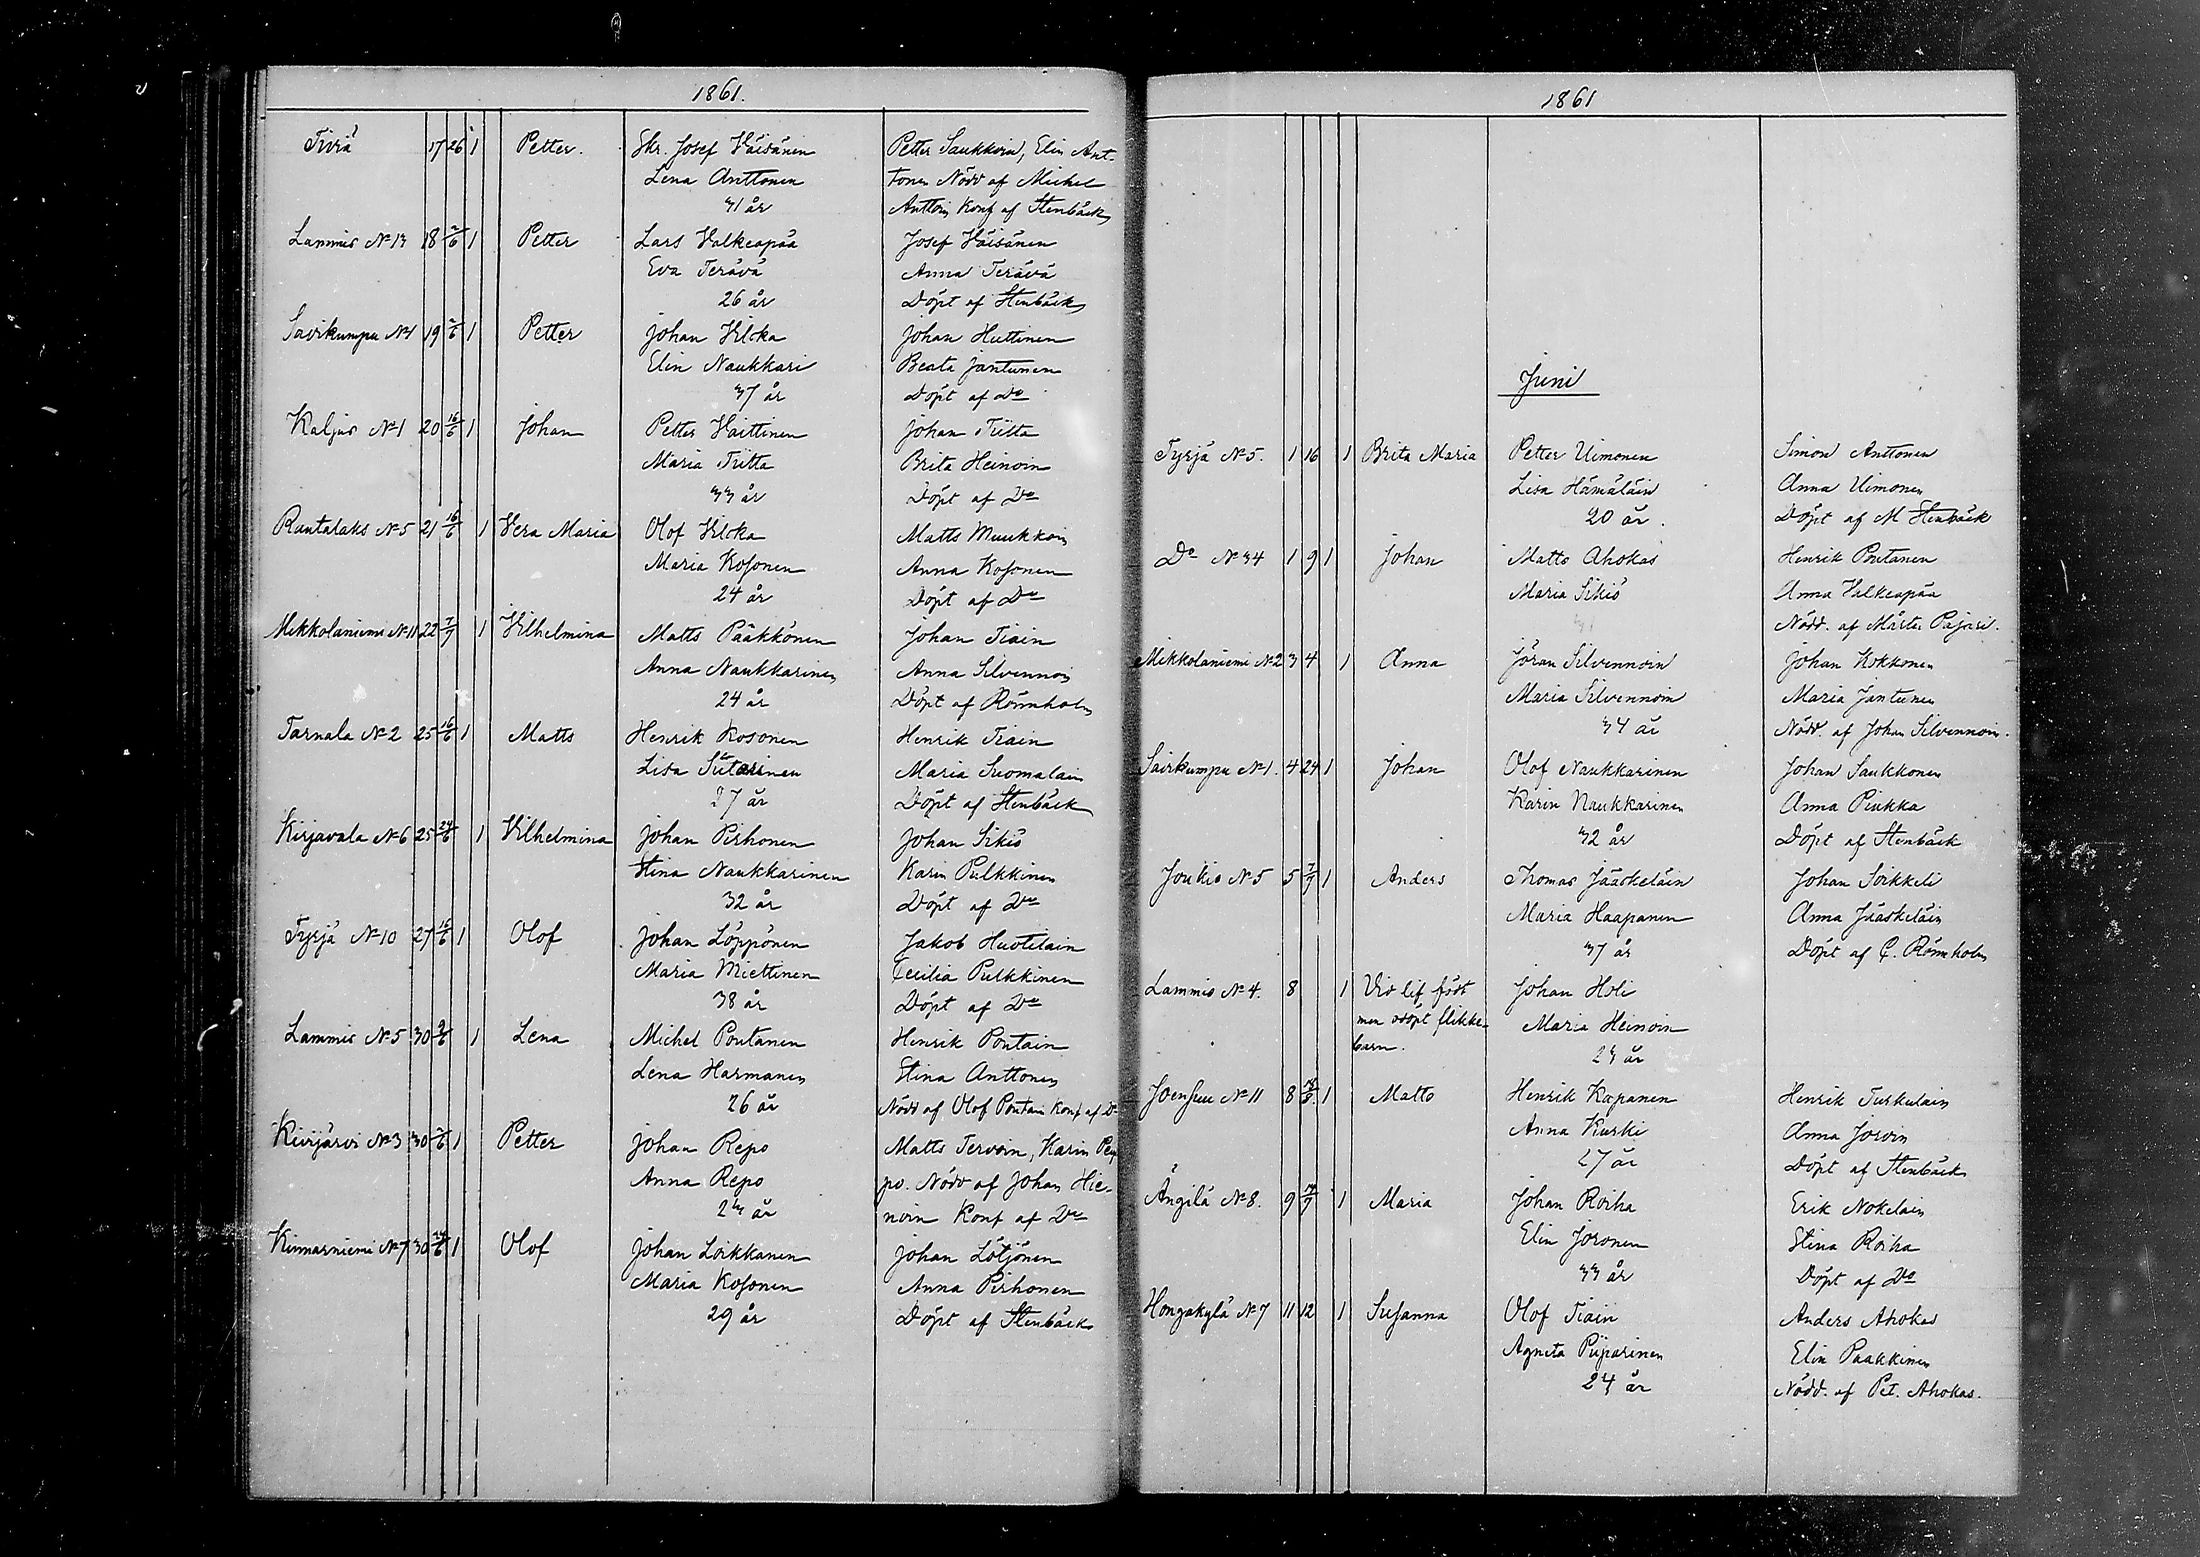 1861.
Tiviä 17 26 1 Petter. Skr. Josef Väisänen Petter Saukkoin, Elin Ant-
Lena Anttonen tonen Nödd af Michel
31 år Anttoin Konf af Stenbäck
Lammis No 13 18 2/6 1 Petter Lars Valkeapää Josef Väisänen
Eva Terävä Anna Terävä
26 år Döpt af Stenbäck
Savikumpu No 1 19 2/6 1 Petter Johan Vilska Johan Huttinen
Elin Naukkari Beata Jantunen
37 år Döpt af Do
Kaljus No 1 20 16/6 1 Johan Petter Vaittinen Johan Tiitta
Maria Tiitta Brita Heinoin
33 år Döpt af Do
Rautalaks No 5 21 16/6 1 Vera Maria Olof Vilska Matts Muukkoin
Maria Kosonen Anna Kosonen
24 år Döpt af Do
Mikkolaniemi No 11 22 7/7 1 Vilhelmina Matts Pääkkönen Johan Tiain
Anna Naukkarinen Anna Silvennoin
24 år Döpt af Rönnholm
Tarnala No 2 25 16/6 1 Matts Henrik Kosonen Henrik Tiain
Lisa Sutarinen Maria Suomalain
27 år Döpt af Stenbäck
Kirjavala No 6 25 24/6 1 Vilhelmina Johan Pirhonen Johan Sikiö
Stina Naukkarinen Karin Pulkkinen
32 år Döpt af Do
Tyrjä No 10 27 16/6 1 Olof Johan Löppönen Jakob Huotilain
Maria Miettinen Cecilia Pulkkinen
38 år Döpt af Do
Lammis No 5 30 9/6 1 Lena Michel Pontanen Henrik Pontain
Lena Harmanen Stina Anttonen
26 år Nödd af Olof Pontain Konf af Do
Kivijärvi No 3 30 2/6 1 Petter Johan Repo Matts Tervoin, Karin Rep
Anna Repo po. Nödd af Johan Hie-
23 år noin Konf af Do
Kinnarniemi No 7 30 24/6 1 Olof Johan Loikkanen Johan Lötjönen
Maria Kosonen Anna Pirhonen
29 år Döpt af Stenbäck
1861
Juni
Tyrjä No 5. 1 16 1 Brita Maria Petter Uimonen Simon Anttonen
Lisa Hämäläin Anna Uimonen
20 år. Döpt af M Stenbäck
Do No 34 1 9 1 Johan Matts Ahokas Henrik Pontanen
Maria Sikiö Anna Valkeapää
Nödd. af Mårten Pajari.
Mikkolaniemi No 2 3 4 1 Anna Jöran Silvennoin Johan Kokkonen
Maria Silvennoin Maria Jantunen
34 år Nödd. af Johan Silvennoin.
Savikumpu No 1. 4 24 1 Johan Olof Naukkarinen Johan Saukkonen
Karin Naukkarinen Anna Piukka
32 år Döpt af Stenbäck
Joukio No 5 5 7/7 1 Anders Thomas Jääskeläin Johan Soikkeli
Maria Haapanen Anna Jääskeläin
37 år Döpt af C. Rönnholm
Lammis No 4. 8 1 Vid lif född Johan Holi
men odöpt flikke- Maria Heinoin
barn. 23 år
Joensuu No 11 8 1 Matts Henrik Kapanen Henrik Turkulain
Anna Kurki Anna Joroin
27 år Döpt af Stenbäck
Ängilä No 8. 9 14/7 1 Maria Johan Roiha Erik Nokelain
Elin Joronen Stina Roiha
33 år Döpt af Do
Hongakylä No 7 11 12 1 Susanna Olof Tiain Anders Ahokas
Agneta Piiparinen Elin Paakkinen
24 år Nödd. af Pet. Ahokas.